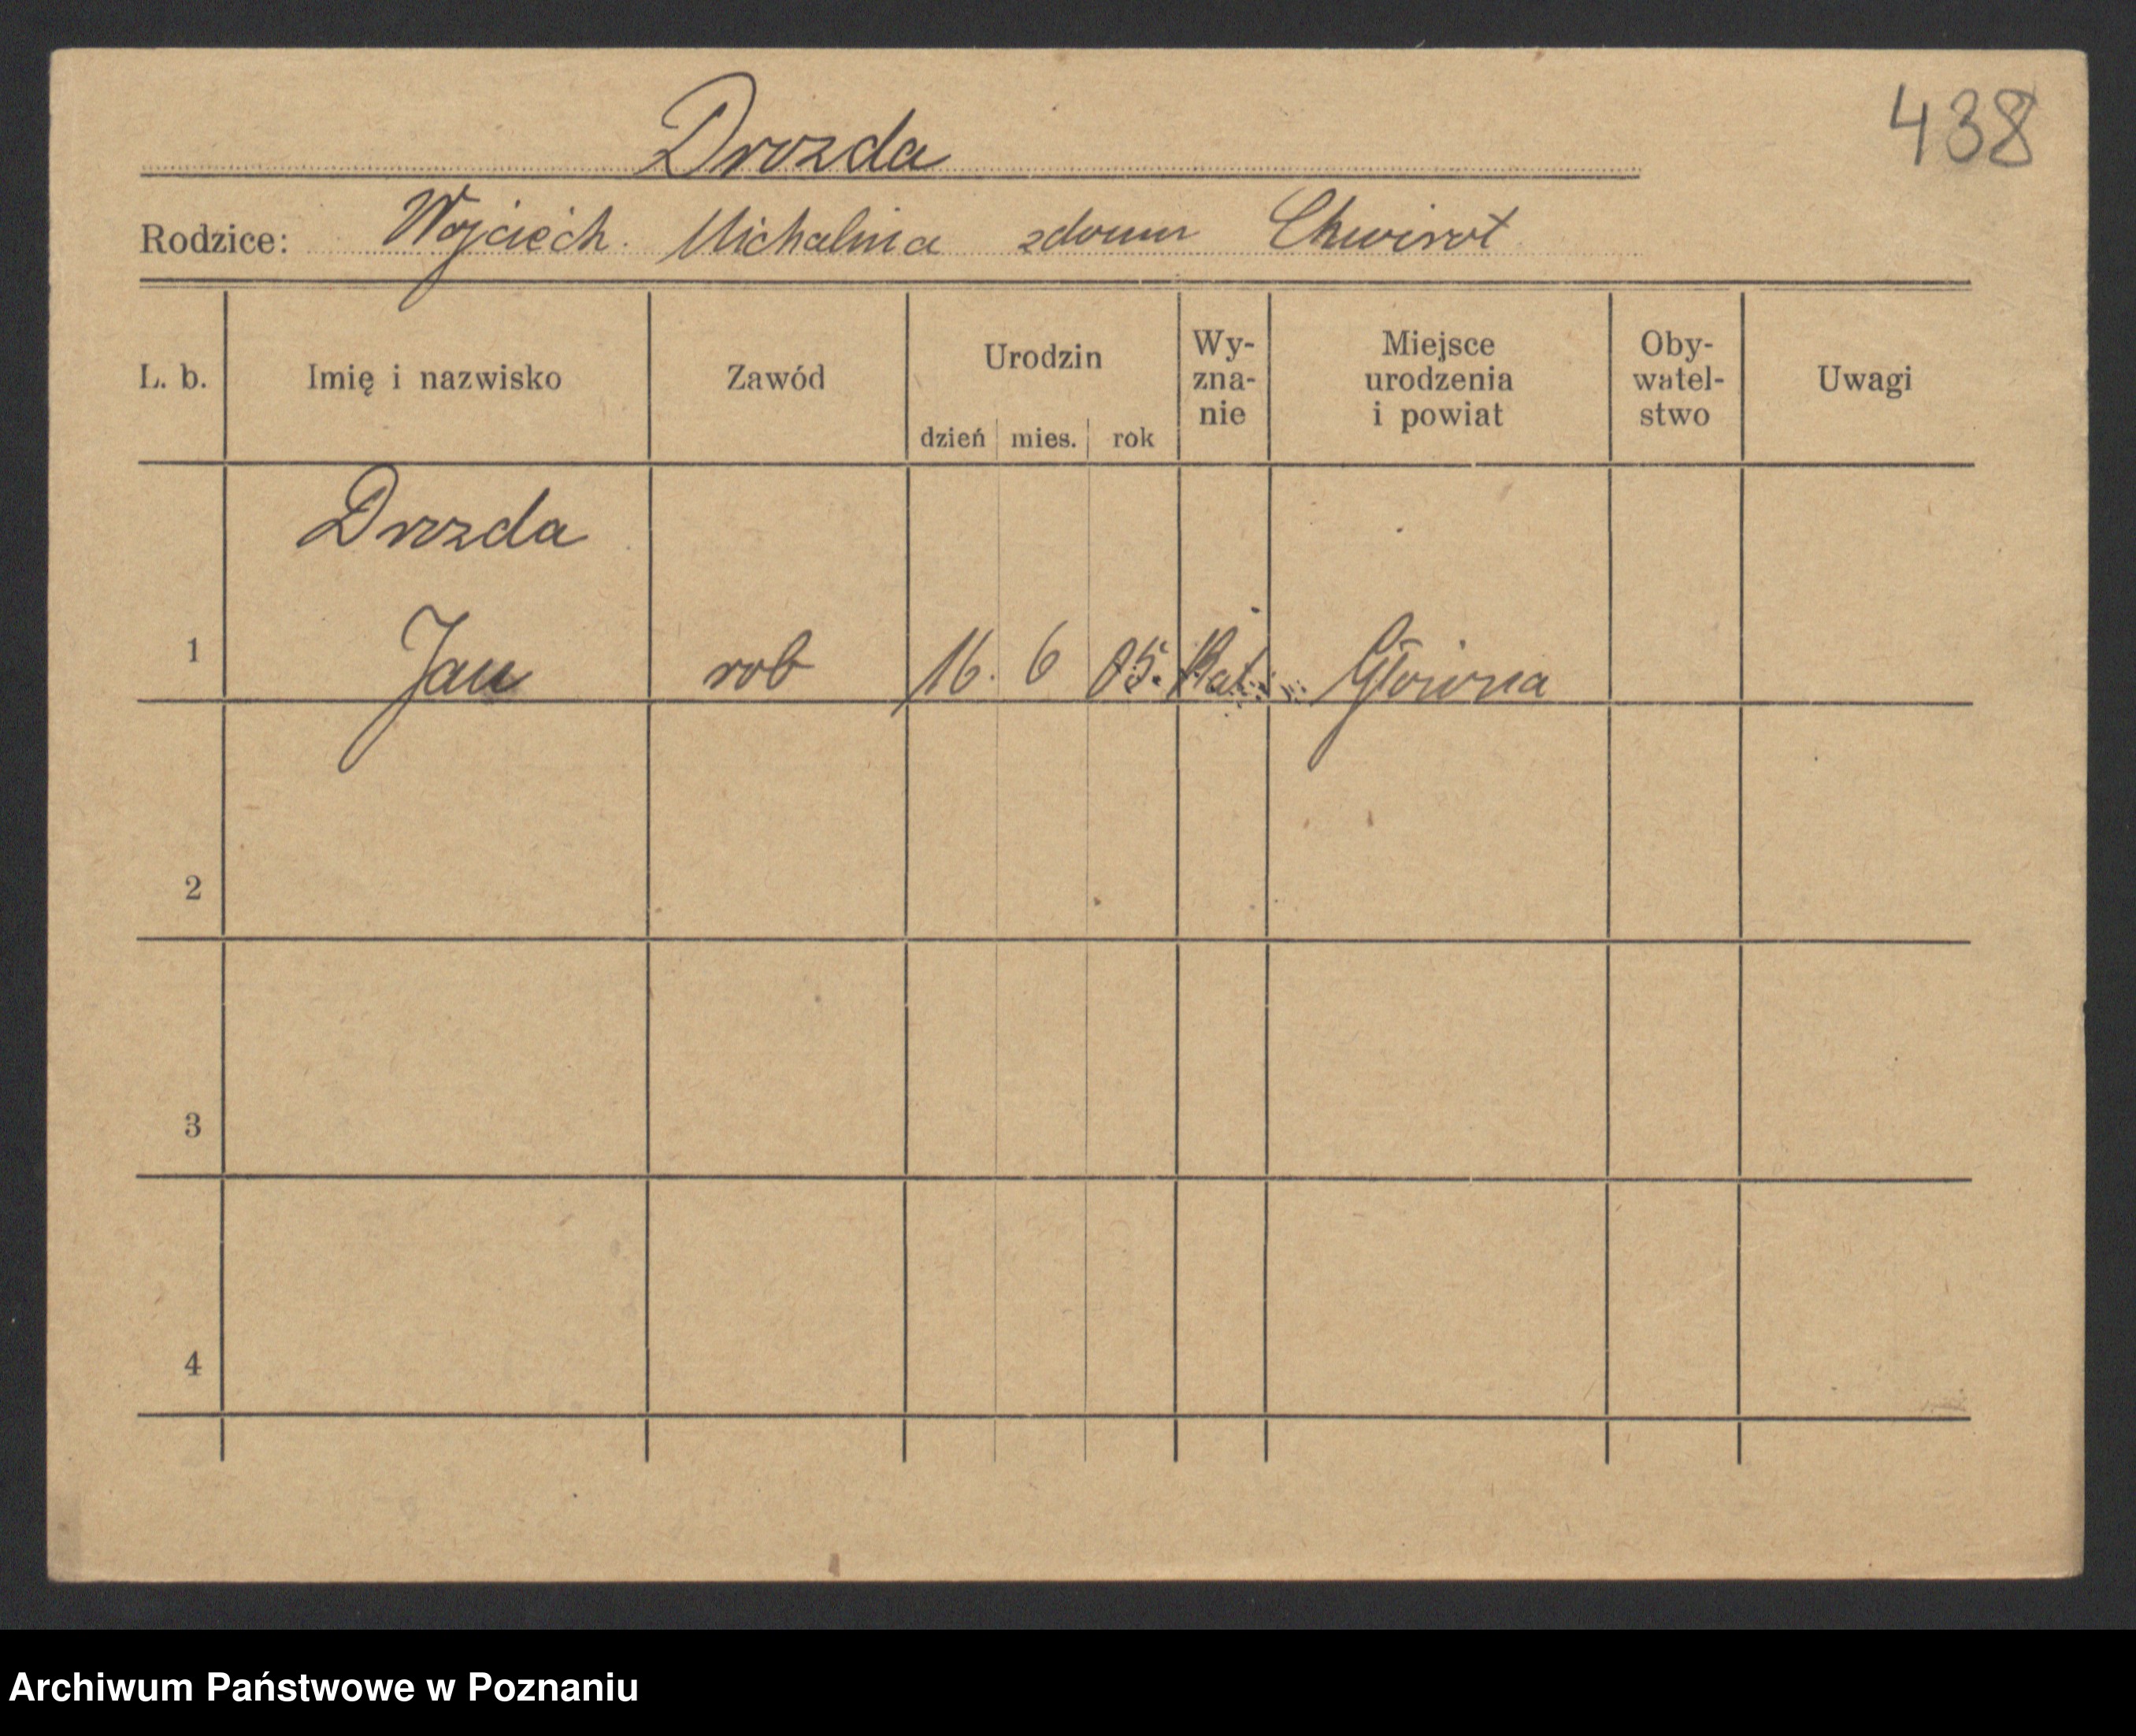 438
Drozda
Rodzice: Wojciech Michalina zdomu Chwirot
L. b. Imię i nazwisko Zawód Urodzin dzień mies. rok Wy-zna-nie Miejsce urodzenia i powiat Oby-watel-stwo Uwagi
Drozda
1 Jan rob 16. 6 05. Kat. Główna
2
3
4
Archiwum Państwowe w Poznaniu